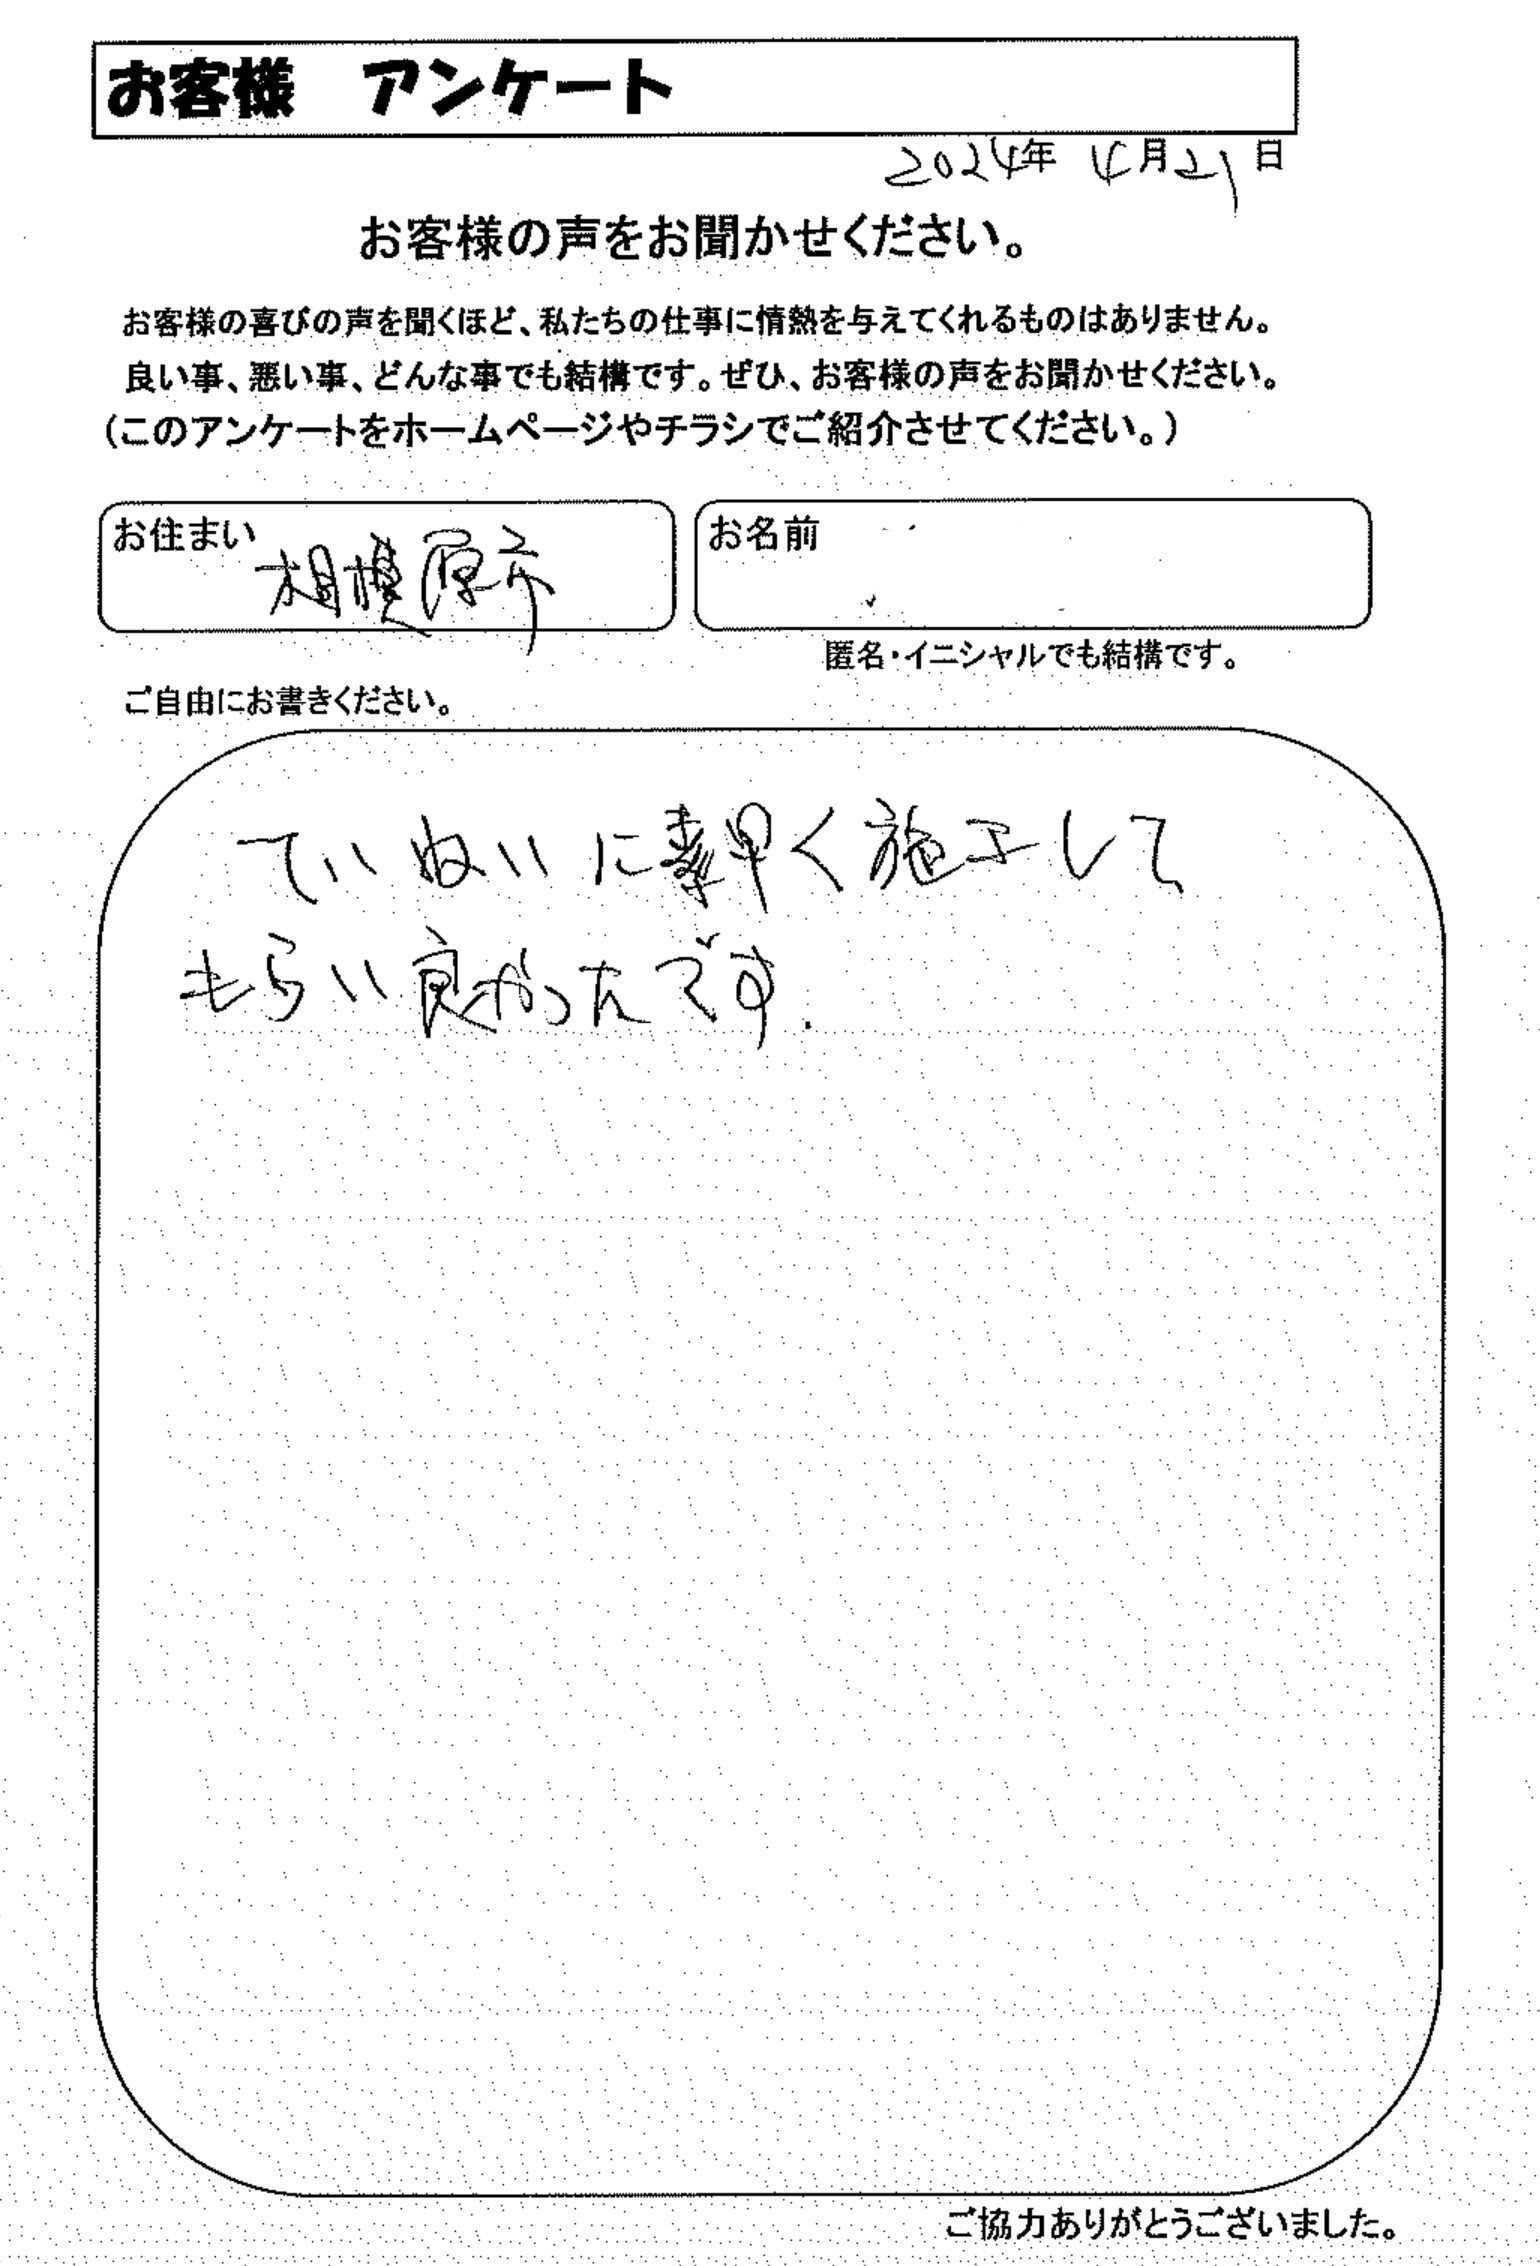 お客様　アンケート
2024年 4月21日
お客様の声をお聞かせください。
お客様の喜びの声を聞くほど、私たちの仕事に情熱を与えてくれるものはありません。
良い事、悪い事、どんな事でも結構です。ぜひ、お客様の声をお聞かせください。
（このアンケートをホームページやチラシでご紹介させてください。）
お住まい 相模原市
お名前
匿名・イニシャルでも結構です。
ご自由にお書きください。
ていねいに素早く施工して
もらい良かったです.
ご協力ありがとうございました。